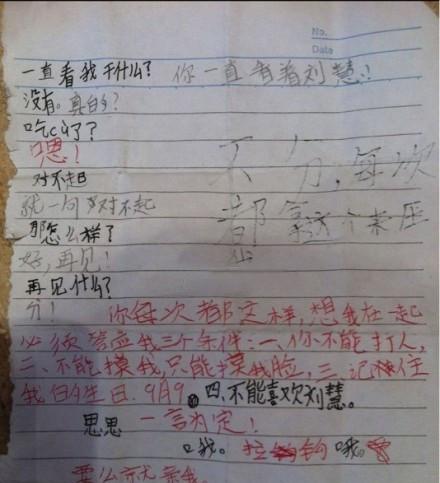 No.
Date
一直看我干什么？ 你一直看着刘慧！
没有。真的？
吃c了？
嗯！
对不起
就一句对不起
不分，每次
都拿这个来压
那怎么样了？
好，再见！
再见什么？
分！ 你每次都这样，想我在一起
必须答应我三个条件：一、你不能打人，
二、不能摸我，只能摸我脸，三、记住
我的生日．9月9。四、不能喜欢刘慧。
思思 一言为定！
口我。 拉钩 哦。
要么就亲我